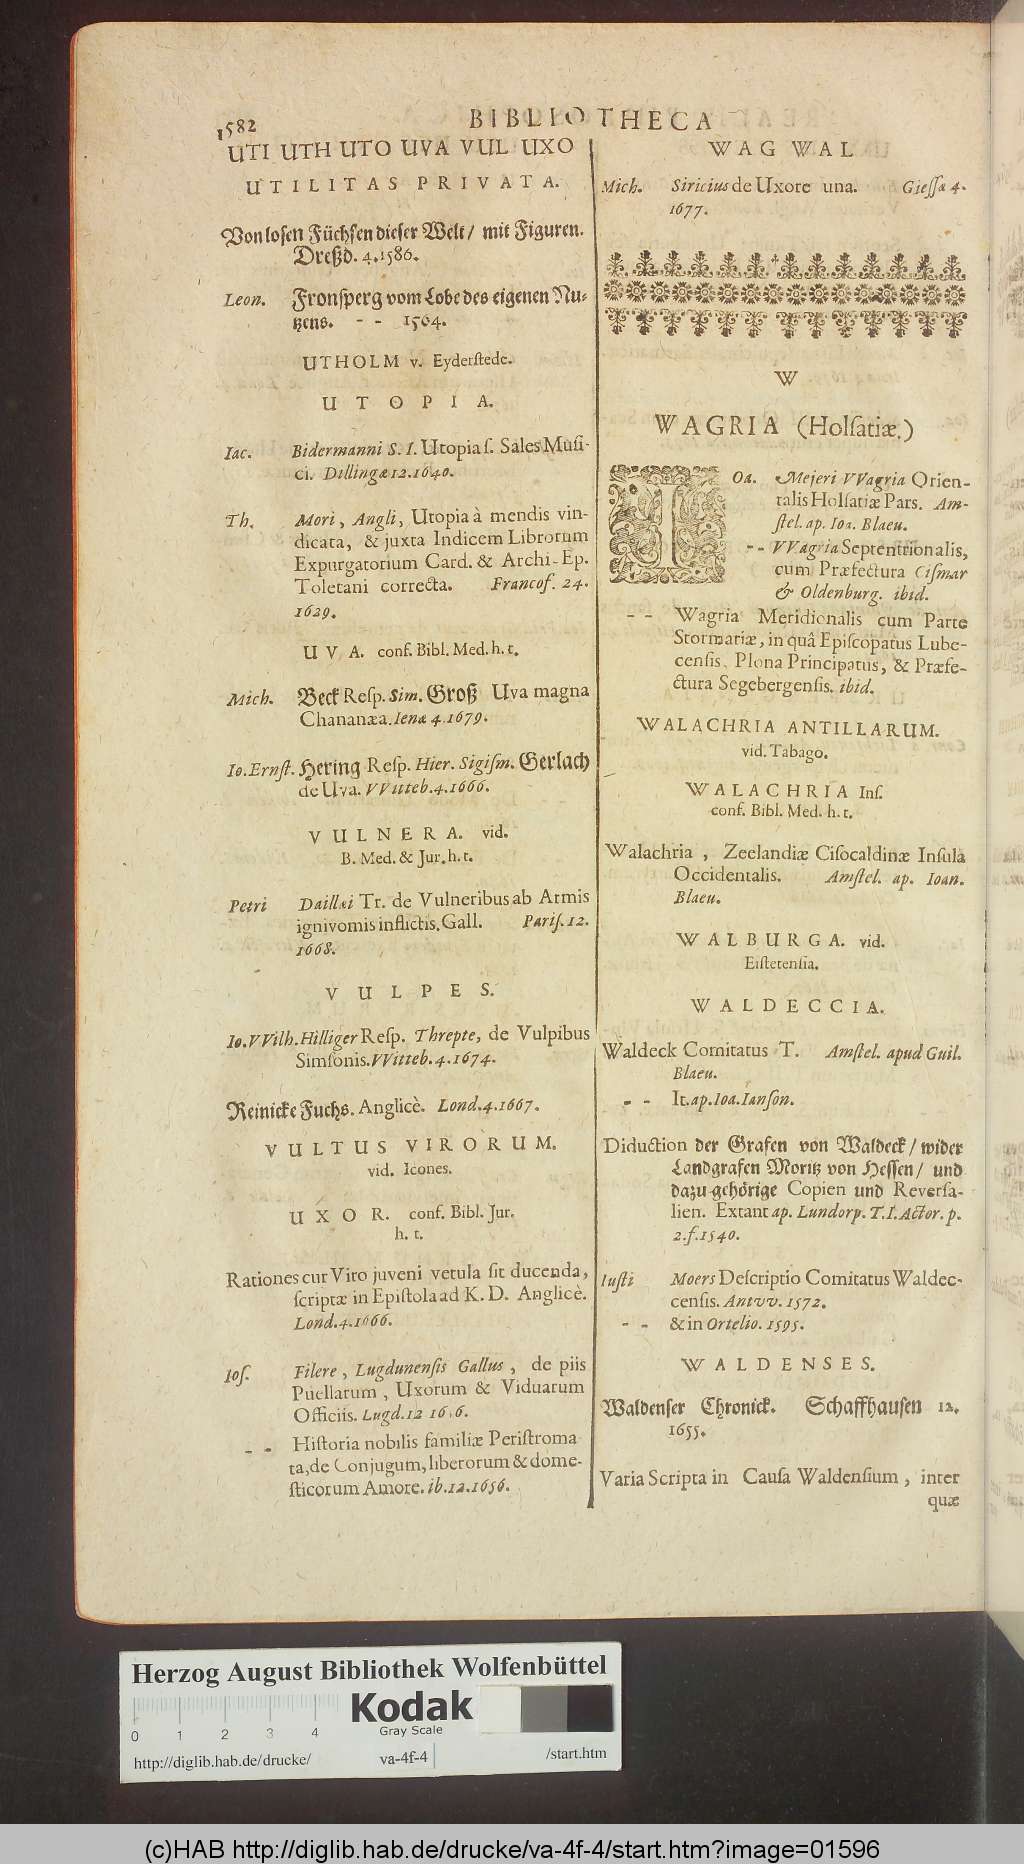 1582
BIBLIOTHECA
UTI UTH UTO UVA VUL UXO
UTILITAS PRIVATA.
Von losen Füchsen dieser Welt/ mit Figuren.
Dreßd. 4.1586.
Leon. Fronsperg vom Lobe des eigenen Nu-
tzens. - - 1564.
UTHOLM v. Eyderſtede.
UTOPIA.
Iac. Bidermanni S. I. Utopia ſ. Sales Muſi-
ci. Dillingæ 12.1640.
Th. Mori, Angli, Utopia à mendis vin-
dicata, & juxta Indicem Librorum
Expurgatorium Card. & Archi-Ep.
Toletani correcta. Francof. 24.
1629.
UVA. conf. Bibl. Med. h. t.
Mich. Beck Reſp. Sim. Groß Uva magna
Chananæa. Ienæ 4.1679.
Io. Ernſt. Hering Reſp. Hier. Sigiſm. Gerlach
de Uva. VVitteb. 4.1666.
VULNERA. vid.
B. Med. & Jur. h. t.
Petri Daillæi Tr. de Vulneribus ab Armis
ignivomis inflictis. Gall. Pariſ. 12.
1668.
VULPES.
Io. VVilh. Hilliger Reſp. Threpte, de Vulpibus
Simſonis. VVitteb. 4.1674.
Reinicke Fuchs. Anglicè. Lond. 4.1667.
VULTUS VIRORUM.
vid. Icones.
UXOR. conf. Bibl. Jur.
h. t.
Rationes cur Viro juveni vetula ſit ducenda,
ſcriptæ in Epiſtola ad K. D. Anglicè.
Lond. 4.1666.
Ioſ. Filere, Lugdunenſis Gallus, de piis
Puellarum, Uxorum & Viduarum
Officiis. Lugd. 12
- - Hiſtoria nobilis familiæ Periſtroma
ta, de Conjugum, liberorum & dome-
ſticorum Amore. ib. 12.1656.
WAG WAL
Mich. Siricius de Uxore una. Gieſſæ 4.
1677.
W
WAGRIA (Holſatiæ.)
IOa. Mejeri VVagria Orien-
talis Holſatiæ Pars. Am-
ſtel. ap. Ioa. Blaeu.
- - VVagria Septentrionalis,
cum Præfectura Ciſmar
& Oldenburg. ibid.
- - Wagria Meridionalis cum Parte
Stormariæ, in quâ Epiſcopatus Lube-
cenſis, Plona Principatus, & Præfe-
ctura Segebergenſis. ibid.
WALACHRIA ANTILLARUM.
vid. Tabago.
WALACHRIA Inſ.
conf. Bibl. Med. h. t.
Walachria, Zeelandiæ Ciſocaldinæ Inſula
Occidentalis. Amſtel. ap. Ioan.
Blaeu.
WALBURGA. vid.
Eiſtetenſia.
WALDECCIA.
Waldeck Comitatus T. Amſtel. apud Guil.
Blaeu.
- - It. ap. Ioa. Ianſon.
Diduction der Grafen von Waldeck/ wider
Landgrafen Moritz von Hessen/ und
dazu-gehörige Copien und Reverſa-
lien. Extant ap. Lundorp. T. I. Actor. p.
2. f. 1540.
Iuſti Moers Deſcriptio Comitatus Waldec-
cenſis. Antvv. 1572.
- - & in Ortelio. 1595.
WALDENSES.
Waldenser Chronick. Schaffhausen 12.
1655.
Varia Scripta in Cauſa Waldenſium, inter
quæ
Herzog August Bibliothek Wolfenbüttel
Kodak
Gray Scale
0 1 2 3 4
http://diglib.hab.de/drucke/ va-4f-4 /start.htm
(c)HAB http://diglib.hab.de/drucke/va-4f-4/start.htm?image=01596